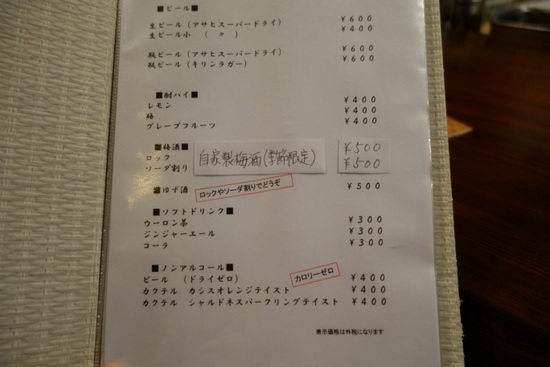 ■ビール■
生ビール（アサヒスーパードライ） ￥６００
生ビール小 （ 〃 ） ￥４００
瓶ビール（アサヒスーパードライ） ￥６００
瓶ビール（キリンラガー） ￥６００
■酎ハイ■
レモン ￥４００
梅 ￥４００
グレープフルーツ ￥４００
■梅酒■ 自家製梅酒（季節限定）
ロック ￥500
ソーダ割り ￥500
■ゆず酒 ロックやソーダ割りでどうぞ ￥５００
■ソフトドリンク■
ウーロン茶 ￥３００
ジンジャーエール ￥３００
コーラ ￥３００
■ノンアルコール■ カロリーゼロ
ビール （ドライゼロ） ￥４００
カクテル カシスオレンジテイスト ￥４００
カクテル シャルドネスパークリングテイスト ￥４００
表示価格は外税になります